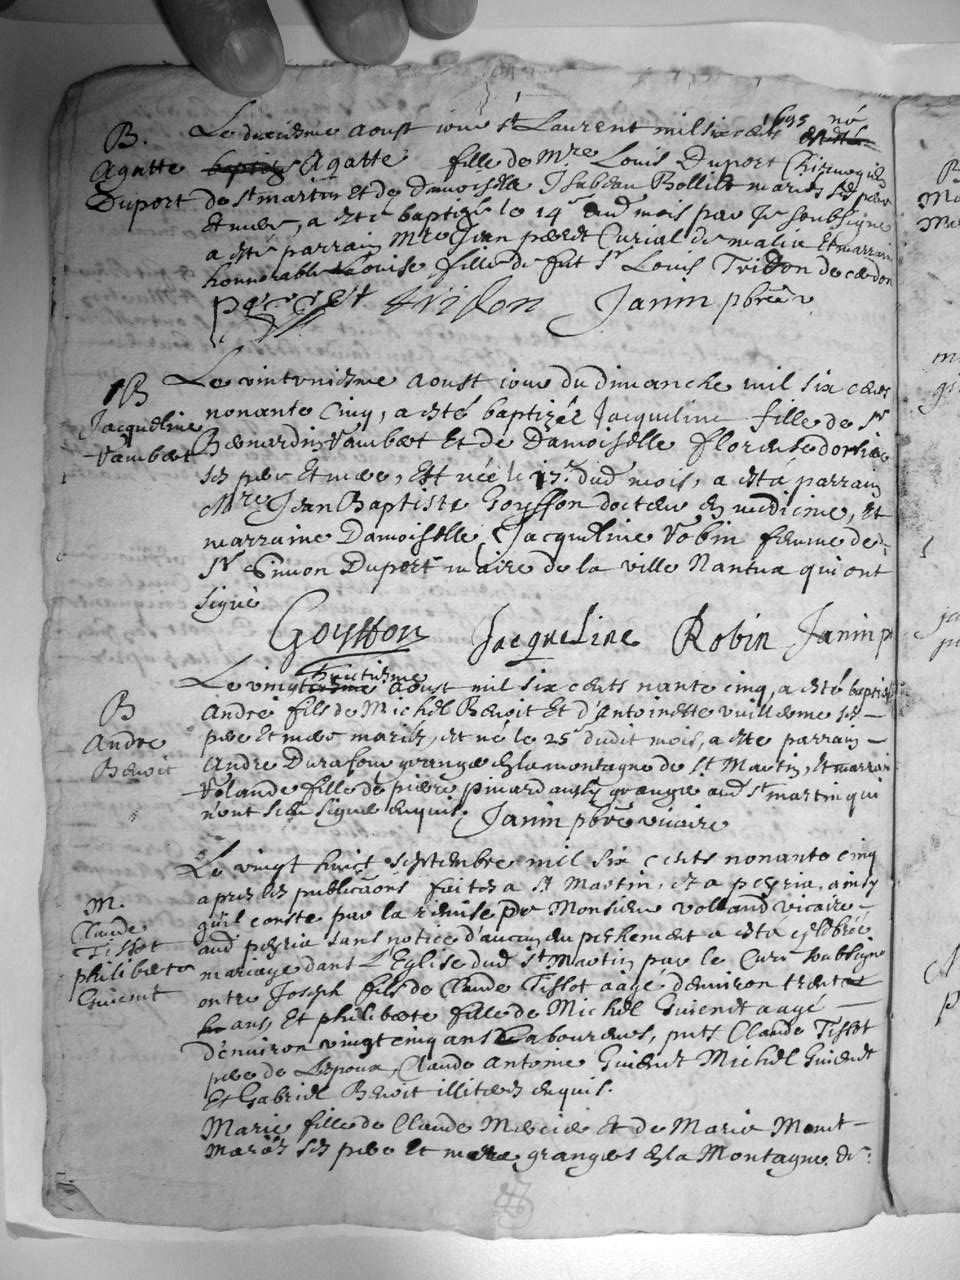 B.
Agatte
Duport
Le dixiesme aoust jour st Laurent mil six cents 1695 né
Agatte fille de Mre Louis Duport Chirurgien
de st martin et de damoiselle Isabeau Bolliet mariés ses pere
et mere, a esté baptisé le 14e dud mois par je soubsigné
a esté parrain Mre Jean perret Curial de malix et marraine
honnorable Louise fille de fut sr Louis Tridon de cerdon
perret tridon Janin pbre v
B
Jacqueline
Vambert
Le vintuniesme aoust jour du dimanche mil six cents
nonante cinq, a esté baptizée Jacqueline fille de sr
Bernardin Vambert et de Damoiselle Florence dorlie
ses pere et mere, est née le 17e dud mois, a esté parrain
Mre Jean Baptiste Goyffon docteur en medicine, et
marraine Damoiselle Jacqueline Robin femme de
sr Simon Duport maire de la ville Nantua qui ont
signé
Goyffon Jacqueline Robin Janin p
B
Andre
Benoit
huictiesme
Le vingt aoust mil six cents nante cinq, a esté baptisé
André fils de Michel Benoit et d'Antoinette vuillerme ses
pere et mere mariés, est né le 25e dudit mois, a esté parrain
André Durafour granger en la montagne de st Martin, et marraine
Yolande fille de pierre pinard aussy granger aud st martin qui
n'ont sceu signer enquis. Janin pbre vicaire
M.
Claude
Tissot
philiberte
Guienet
Le vingt huict septembre mil six cents nonante cinq
apres les publicaons faites a st Martin, et a peyria, ainsy
qu'il conste par la remise de Monsieur volland vicaire
aud peyria sans notice d'aucun empechement a esté celebré
mariage dans l'Eglise dud st Martin par le Curé soubsigné
entre Joseph fils de Claude Tissot aagé d'environ trente
ans, et philiberte fille de Michel Guienet aagé
d'environ vingt cinq ans Laboureurs, pnts Claude Tissot
pere de l'epoux, Claude Antoine Guienet Michel Guienet
et Gabriel Benoit illiterés enquis.
Marie fille de Claude Mercier et de Marie Monet
mariés ses pere et mere grangers en la Montagne de